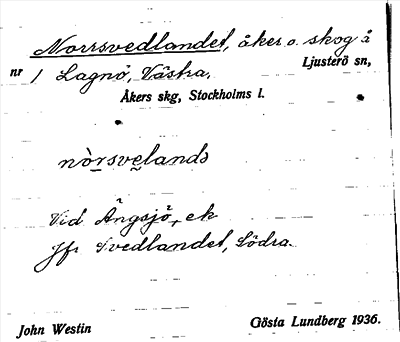 Norrsvedlandet, åker o. skog å
nr 1 Lagnö, Västra. Ljusterö sn,
Åkers skg, Stockholms l.
nòrsvelandə
Vid Ängsjö, ek
Jfr Svedlandet, Södra.
John Westin Gösta Lundberg 1936.